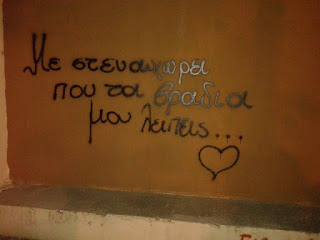 Με στεναχωρει
που τα βραδια
μου λειπεις...